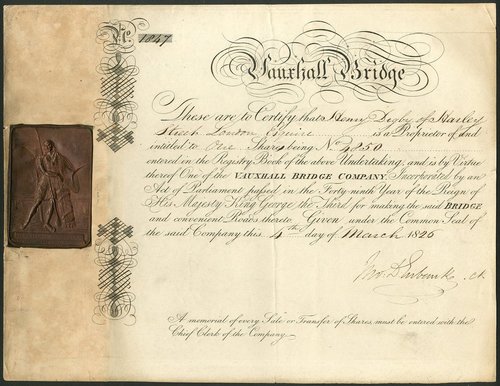 No. 1847
Vauxhall Bridge
These are to Certify that Henry Digby of Harley
Street London Esquire is a Proprietor of and
intitled to One Share being No. 2850
entered in the Registry Book of the above Undertaking, and is by Virtue
thereof One of the VAUXHALL BRIDGE COMPANY, Incorporated by an
Act of Parliament passed in the Forty-ninth Year of the Reign of
His Majesty King George the Third for making the said BRIDGE
and convenient Roads thereto. Given under the Common Seal of
the said Company this 4th day of March 1825
Ck
A memorial of every Sale or Transfer of Shares, must be entered with the
Chief Clerk of the Company.